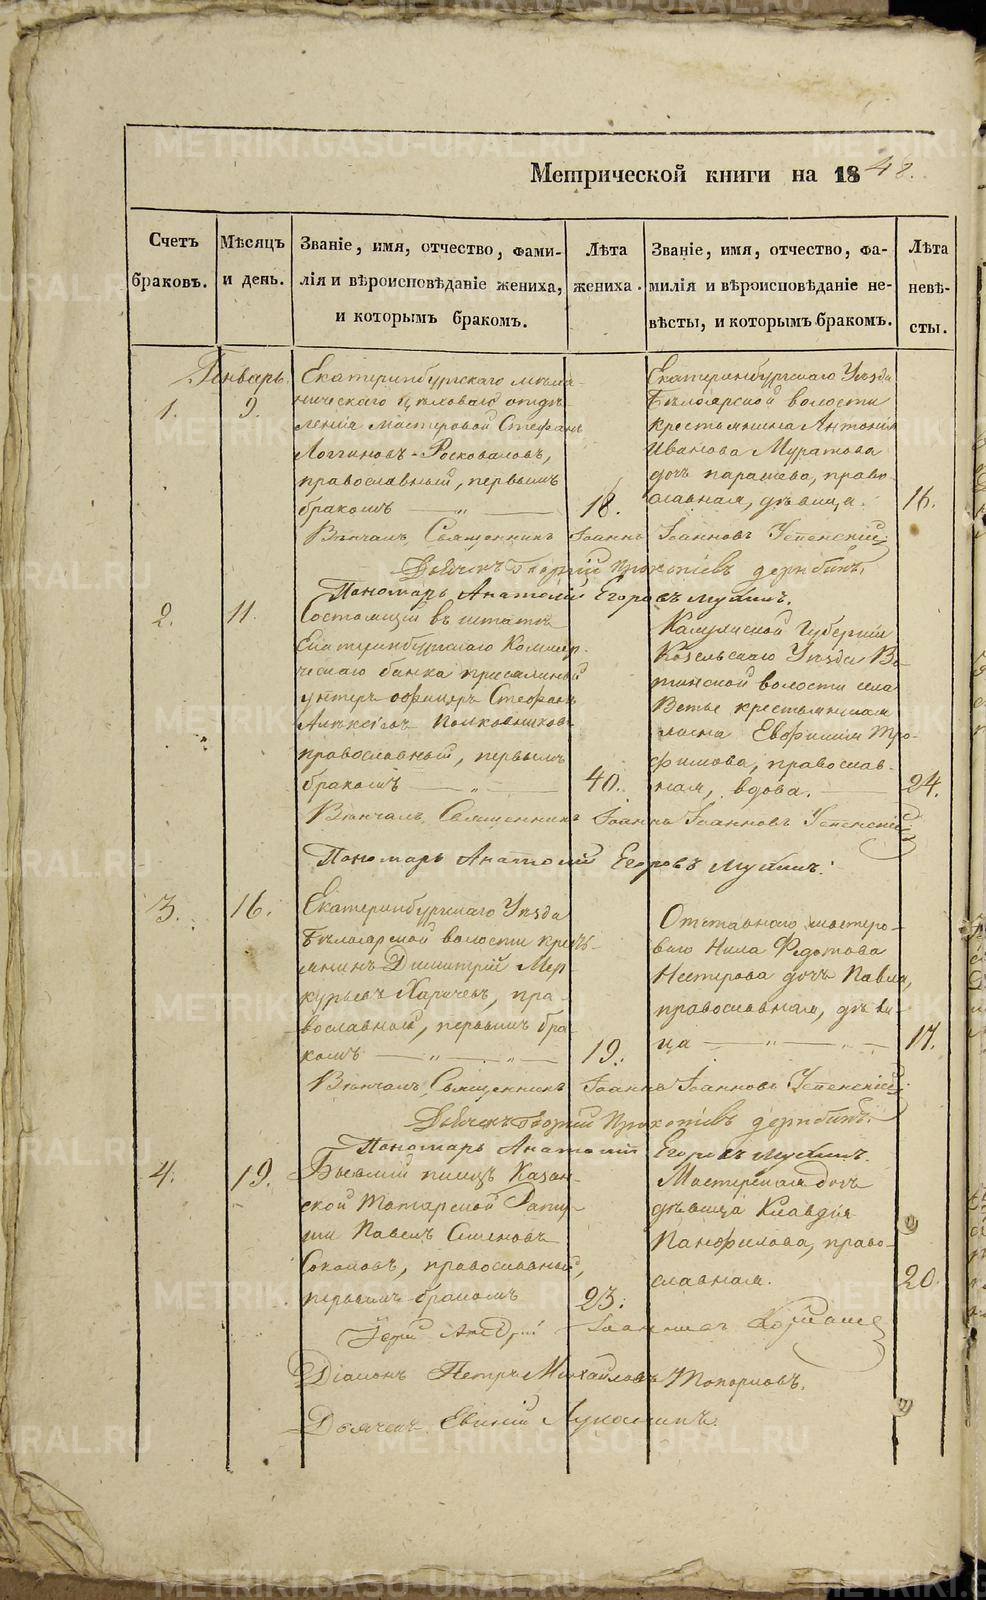 Метрической книги на 1848.
Счетъ браковъ.
Мѣсяцъ и день.
Званіе, имя, отчество, фами-
лія и вѣроисповѣданіе жениха,
и которымъ бракомъ.
Лѣта жениха.
Званіе, имя, отчество, фа-
милія и вѣроисповѣданіе не-
вѣсты, и которымъ бракомъ.
Лѣта невѣ-
сты.
Генварь
1. 9.
Екатеринбургскаго меха-
ническаго цѣховаго отдѣ-
ленія мастеровой Стефанъ
Логгиновъ Росковаловъ,
православный, первымъ
бракомъ — „ —
18.
Екатеринбургскаго Уѣзда
Бѣлоярской волости
крестьянина Антонія
Иванова Муратова
дочь Параскева, право-
славная, дѣвица.
16.
Вѣнчалъ Священникъ Іоаннъ Іоанновъ Успенскій
Дьячекъ Георгій Прокопіевъ
Пономарь Анатолій Егоровъ
2. 11.
Состоящій въ штатѣ
Екатеринбургскаго Коммер-
ческаго банка присяжный
унтеръ офицеръ Стефанъ
Алексѣевъ Полковниковъ
православный, первымъ
бракомъ — „ —
40.
Калужской Губерніи
Козельскаго Уѣзда
волости села
крестьянская
жена Евфимія Тро-
фимова, православ-
ная, вдова. —
24.
Вѣнчалъ Священникъ Іоаннъ Іоанновъ Успенскій
Пономарь Анатолій Егоровъ
3. 16.
Екатеринбургскаго Уѣзда
Бѣлоярской волости кресть-
янинъ Димитрій Мер-
курьевъ, пра-
вославной, первымъ бра-
комъ — „ — „ —
19.
Отставнаго мастеро-
ваго Нила Федотова
Нестерова дочь Павла,
православная, дѣви-
ца — „ —
17.
Вѣнчалъ Священникъ Іоаннъ Іоанновъ Успенскій
Дьячекъ Георгій Прокопіевъ
Пономарь Анатолій Егоровъ
4. 19.
Бывшій писецъ Казан-
ской Татарской Рату-
ши Павелъ Семеновъ
Соколовъ, православный,
первымъ бракомъ
23.
Мастерская дочь
дѣвица Клавдія
Панфилова, право-
славная.
20.
Іерей Андрей
Діаконъ Петръ Михайловъ Топорковъ.
Дьячекъ
METRIKI.GASO-URAL.RU